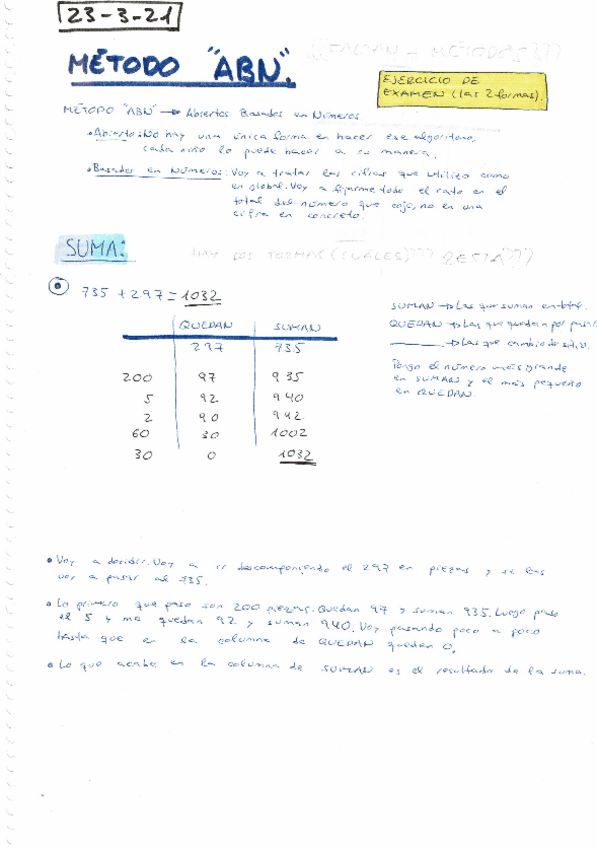 23-3-21
MÉTODO "ABN".
¿¿FALTAN - MÉTODOS???
EJERCICIO DE
EXAMEN (las 2 formas).
MÉTODO "ABN" → Abiertos Basados en Números
• Abierto: No hay una única forma en hacer ese algoritmo,
cada niño lo puede hacer a su manera.
• Basados en Números: Voy a tratar las cifras que utilizo como
en global. Voy a fijarme todo el rato en el
total del número que cojo, no en una
cifra en concreto.
SUMA:
HAY DOS FORMAS (CUÁLES)??? RESTA???
735 + 297 = 1032
QUEDAN SUMAN
297 735
200 97 935
5 92 940
2 90 942
60 30 1002
30 0 1032
SUMAN → Las que suman en total.
QUEDAN → Las que quedan por pasar.
→ Las que cambio de sitio.
Pongo el número más grande
en SUMAN y el más pequeño
en QUEDAN.
• Voy a decidir. Voy a ir descomponiendo el 297 en piezas y se las
voy a pasar al 735.
• Lo primero que paso son 200 piezas. Quedan 97 y suman 935. Luego paso
el 5 y me quedan 92 y suman 940. Voy pasando poco a poco
hasta que en la columna de QUEDAN queden 0.
• Lo que acabe en la columna de SUMAN es el resultado de la suma.